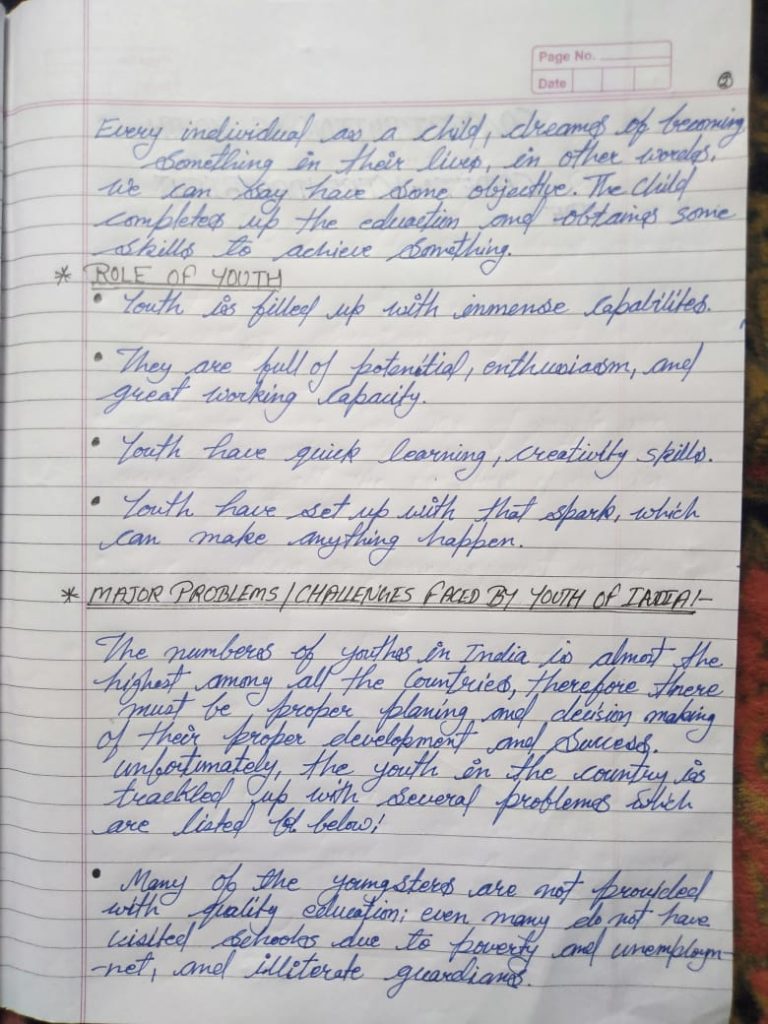 Page No.
Date
2
Every individual as a child, dreams of becoming
something in their lives, in other words,
we can say have some objective. The child
completes up the eduaction and obtains some
skills to achieve something.
* ROLE OF YOUTH
• Youth is filled up with inmense capabilites.
• They are full of potenitial, enthusiasm, and
great working capacity.
• Youth have quick learning, creativity skills.
• Youth have set up with that spark, which
can make anything happen.
* MAJOR PROBLEMS / CHALLENGES FACED BY YOUTH OF INDIA!-
The numbers of youths in India is almost the
highest among all the countries, therefore there
must be proper planing and decision making
of their proper development and success.
unfortunately, the youth in the country is
trackled up with several problems which
are listed below!
• Many of the youngsters are not provided
with quality education; even many do not have
visited schools due to poverty and unemploym-
-net, and illiterate guardians.